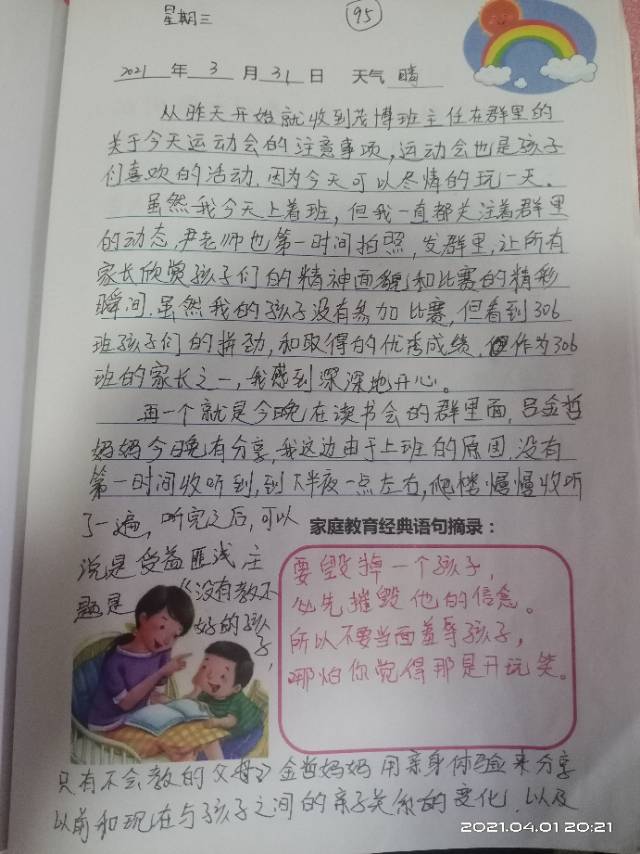 星期三
95
2021 年 3 月 31 日 天气 晴
从昨天开始就收到茂博班主任在群里的
关于今天运动会的注意事项，运动会也是孩子
们喜欢的活动，因为今天可以尽情的玩一天。
虽然我今天上着班，但我一直都关注着群里
的动态，尹老师也第一时间拍照，发群里，让所有
家长欣赏孩子们的精神面貌和比赛的精彩
瞬间，虽然我的孩子没有参加比赛，但看到306
班孩子们的拼劲，和取得的优秀成绩，作为306
班的家长之一，我感到深深地开心。
再一个就是今晚在读书会的群里面，吕金哲
妈妈今日晚有分享，我这边由于上班的原因，没有
第一时间收听到，到大半夜一点左右，爬楼慢慢收听
了一遍，听完之后，可以
说是受益匪浅，主
题是《没有教不
好的孩子，
只有不会教的父母》金哲妈妈用亲身体验来分享
以前和现在与孩子之间的亲子关系的变化，以及
家庭教育经典语句摘录：
要毁掉一个孩子，
必先摧毁他的信念。
所以不要当面羞辱孩子，
哪怕你觉得那是开玩笑。
2021.04.01 20:21